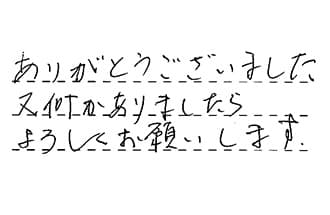 ありがとうございました
又何かありましたら
よろしくお願いします.